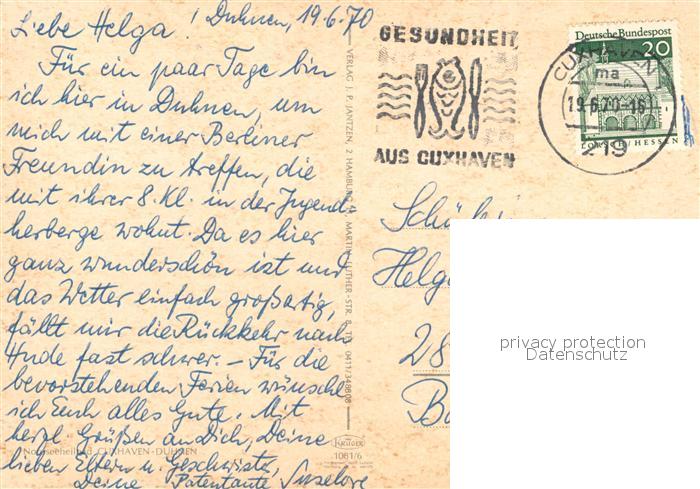 Duhnen, 19.6.70
Liebe Helga!
Für ein paar Tage bin
ich hier in Duhnen, um
mich mit einer Berliner
Freundin zu treffen, die
mit ihrer 8. Kl. in der Jugend-
herberge wohnt. Da es hier
ganz wunderschön ist und
das Wetter einfach großartig,
fällt mir die Rückkehr nach
Hude fast schwer. – Für die
bevorstehenden Ferien wünsche
ich Euch alles Gute. Mit
herzl. Grüßen an Dich, Deine
lieben Eltern u. Geschwister,
Deine Patentante Inselore
Nordseeheilbad CUXHAVEN-DUHNEN
VERLAG J. P. JANTZEN, 2 HAMBURG MARTIN-LUTHER-STR. 0411/348608
KRÜGER
1061/6
GESUNDHEIT
AUS CUXHAVEN
Deutsche Bundespost
20
LORSCH/HESSEN
CUXHAVEN
ma
19.6.70-16
219
Helga
28
privacy protection
Datenschutz